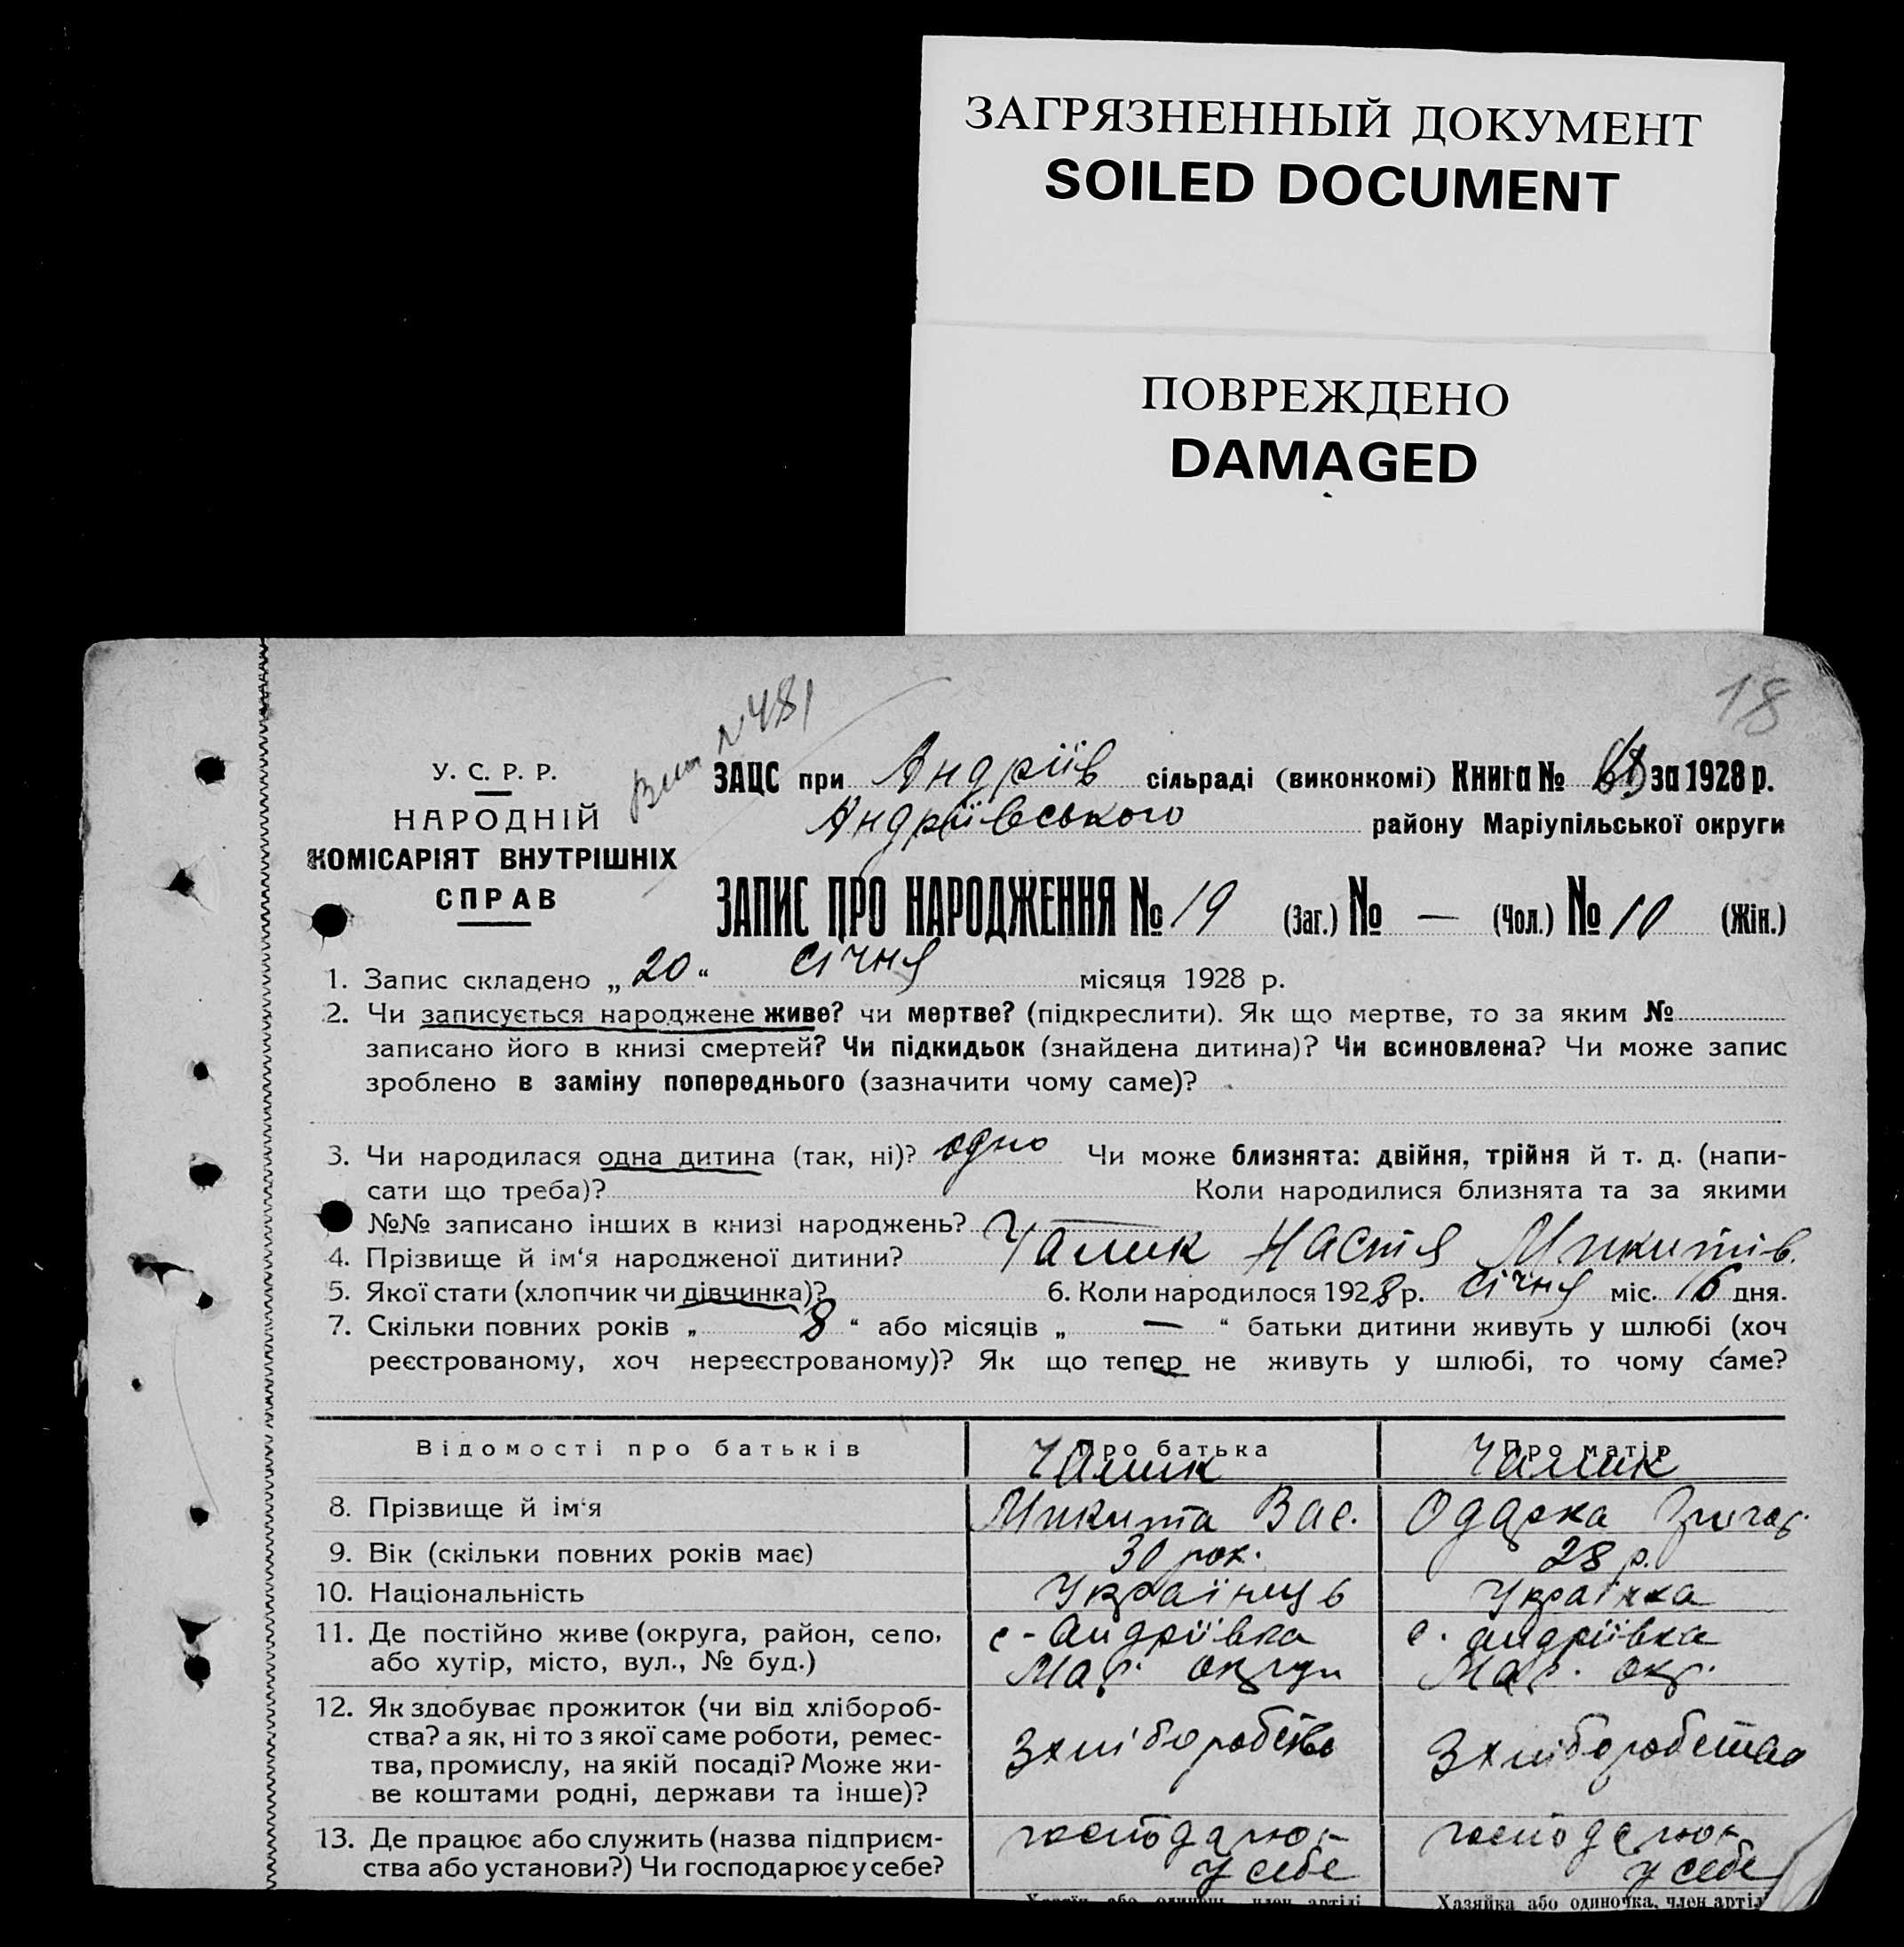 ЗАГРЯЗНЕННЫЙ ДОКУМЕНТ
SOILED DOCUMENT
ПОВРЕЖДЕНО
DAMAGED
18
Вип №481
У. С. Р. Р.
НАРОДНІЙ
КОМІСАРІЯТ ВНУТРІШНІХ
СПРАВ
ЗАЦС при Андріїв сільраді (виконкомі) Книга № за 1928 р.
Андріївського району Маріупільської округи
ЗАПИС ПРО НАРОДЖЕННЯ № 19 (Заг.) № — (Чол.) № 10 (Жін.)
1. Запис складено „20“ січня місяця 1928 р.
2. Чи записується народжене живе? чи мертве? (підкреслити). Як що мертве, то за яким №
записано його в книзі смертей? Чи підкидьок (знайдена дитина)? Чи всиновлена? Чи може запис
зроблено в заміну попереднього (зазначити чому саме)?
3. Чи народилася одна дитина (так, ні)? одно Чи може близнята: двійня, трійня й т. д. (напи-
сати що треба)? Коли народилися близнята та за якими
№№ записано інших в книзі народжень?
4. Прізвище й ім‘я народженої дитини? Чалик Настя Микитів.
5. Якої стати (хлопчик чи дівчинка)? 6. Коли народилося 1928 р. січня міс. 16 дня.
7. Скільки повних років „ 8 “ або місяців „ — “ батьки дитини живуть у шлюбі (хоч
реєстрованому, хоч нереєстрованому)? Як що тепер не живуть у шлюбі, то чому саме?
Відомості про батьків Про батька Про матір
Чалик Чалик
8. Прізвище й ім‘я Микита Вас. Одарка
9. Вік (скільки повних років має) 30 рок. 28 р.
10. Національність Українець Українка
11. Де постійно живе (округа, район, село, с. Андріївка с. Андріївка
або хутір, місто, вул., № буд.) Мар. округи Мар. окр.
12. Як здобуває прожиток (чи від хлібороб-
ства? а як, ні то з якої саме роботи, ремес-
тва, промислу, на якій посаді? Може жи-
ве коштами родні, держави та інше)?
З хліборобства З хліборобства
13. Де працює або служить (назва підприєм-
ства або установи?) Чи господарює у себе?
господарює господарює
у себе у себе
Хазяїн або одинець, член артілі Хазяйка або одиночка, член артіл